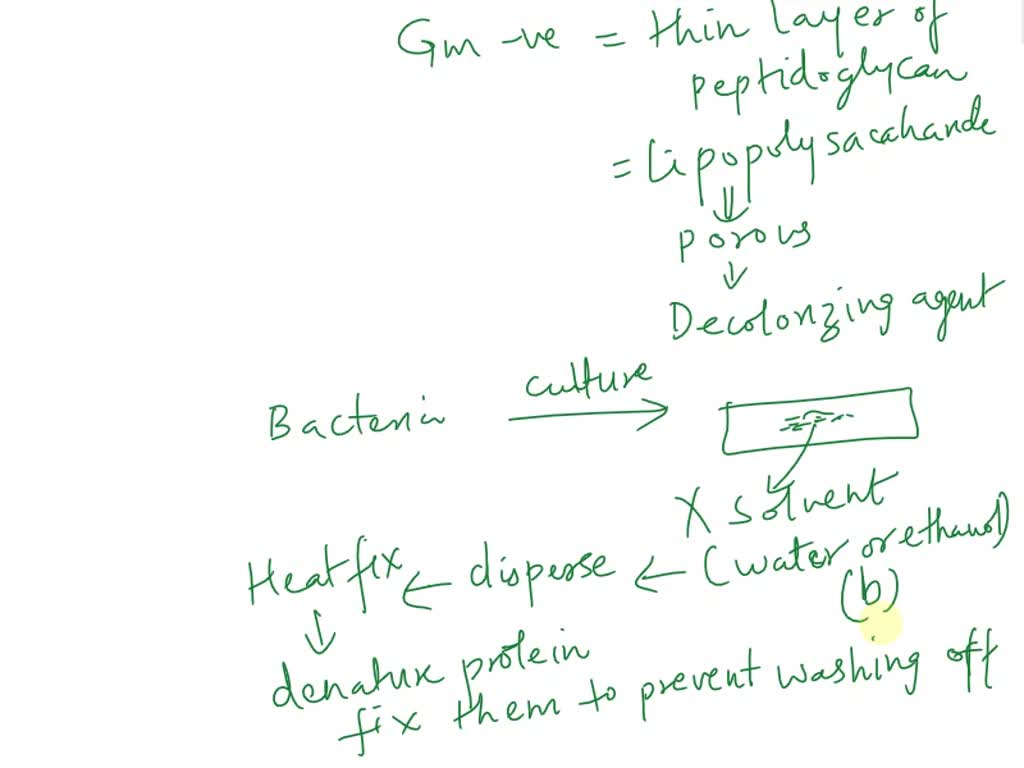 Gm -ve = thin layer of
peptidoglycan
= Lipopolysacchande
⇓
porous
↓
Decolonzing agent
Bacteria culture →
X solvent
(water or ethanol)
Heatfix ← disperse ←
(b)
↓
denature protein
fix them to prevent washing off